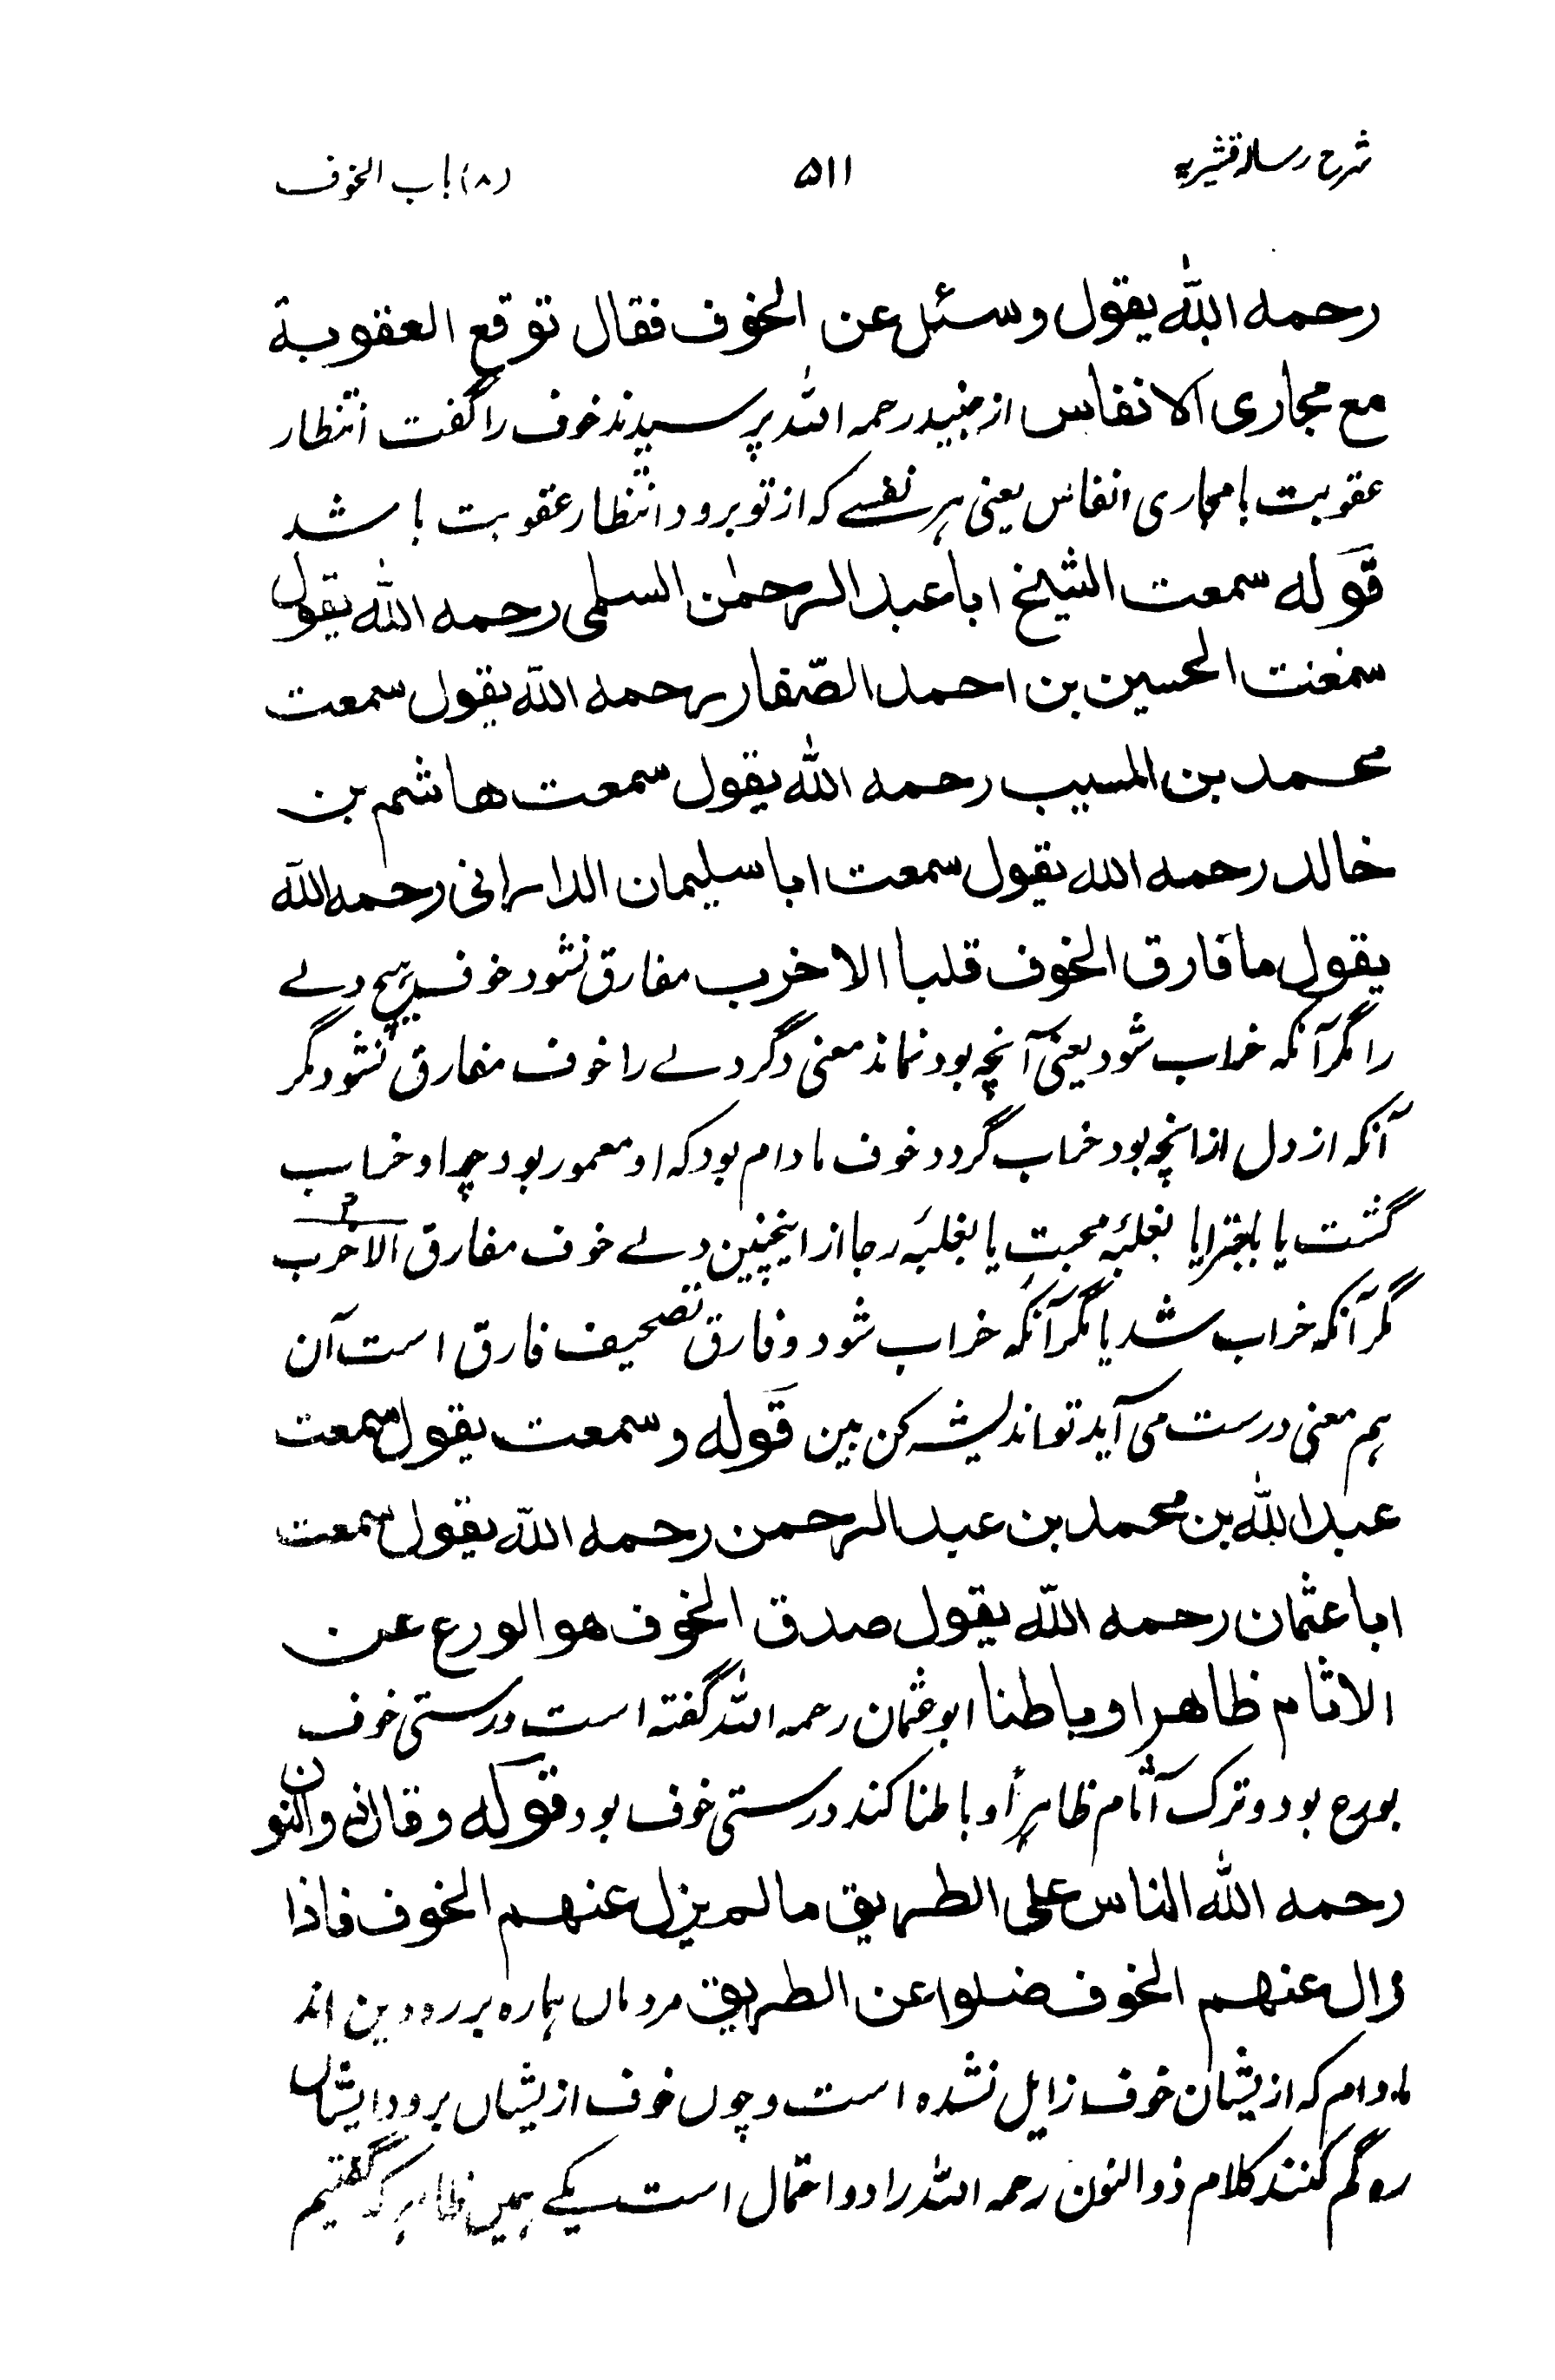 شرح رسالہ قشیریہ ۵۱۱ (۸) باب الخوف
رحمه الله يقول وسئل عن الخوف فقال توقع العقوبة
مع مجاری الانفاس از جنید رحمہ اللہ پرسیدند خوف را گفت انتظار
عقوبت با مجاری انفاس یعنی ہر نفسے کہ از تو برود انتظار عقوبت باشد
قوله سمعت الشیخ ابا عبد الرحمٰن السلمی رحمه الله یقول
سمعت الحسین بن احمد الصّفار رحمه الله یقول سمعت
محمد بن المسیب رحمه الله یقول سمعت هاشم بن
خالد رحمه الله یقول سمعت ابا سلیمان الدارانی رحمه الله
یقول ما فارق الخوف قلبا الا خرب مفارق نشود خوف ہیچ دلے
را مگر آنکہ خراب شود یعنی آنچہ بود نماند معنی دگر دلے را خوف مفارق نشود مگر
آنکہ از دل ازانچہ بود خراب گردد خوف مادام بود کہ او معمور بود چو او خراب
گشت یا یا بغلبۂ محبت یا بغلبۂ رجا از اینچنین دلے خوف مفارق الا خرب
مگر آنکہ خراب شد یا مگر آنکہ خراب شود و فارق تصحیف فارق است آن
ہم معنی درست می آید تو اندیشہ کن ببین قوله وسمعت یقول سمعت
عبد الله بن محمد بن عبد الرحمن رحمه الله یقول سمعت
ابا عثمان رحمه الله یقول صدق الخوف هو الورع عن
الاثام ظاهرا وباطنا ابو عثمان رحمہ اللہ گفتہ است درستی خوف
بورع بود و ترک آثام ظاہراً و باطنا کند درستی خوف بود قوله وقال ذوالنون
رحمه الله الناس علی الطریق مالم یزل عنهم الخوف فاذا
زال عنهم الخوف ضلوا عن الطریق مردماں ہمارہ بر رہ دین اند
مادام کہ ازیشان خوف زایل نشدہ است و چوں خوف ازیشاں برود ایشاں
رہ گم کنند کلام ذو النون رحمہ اللہ را دو احتمال است یکے ہمیں ظاہر کہ گفتیم